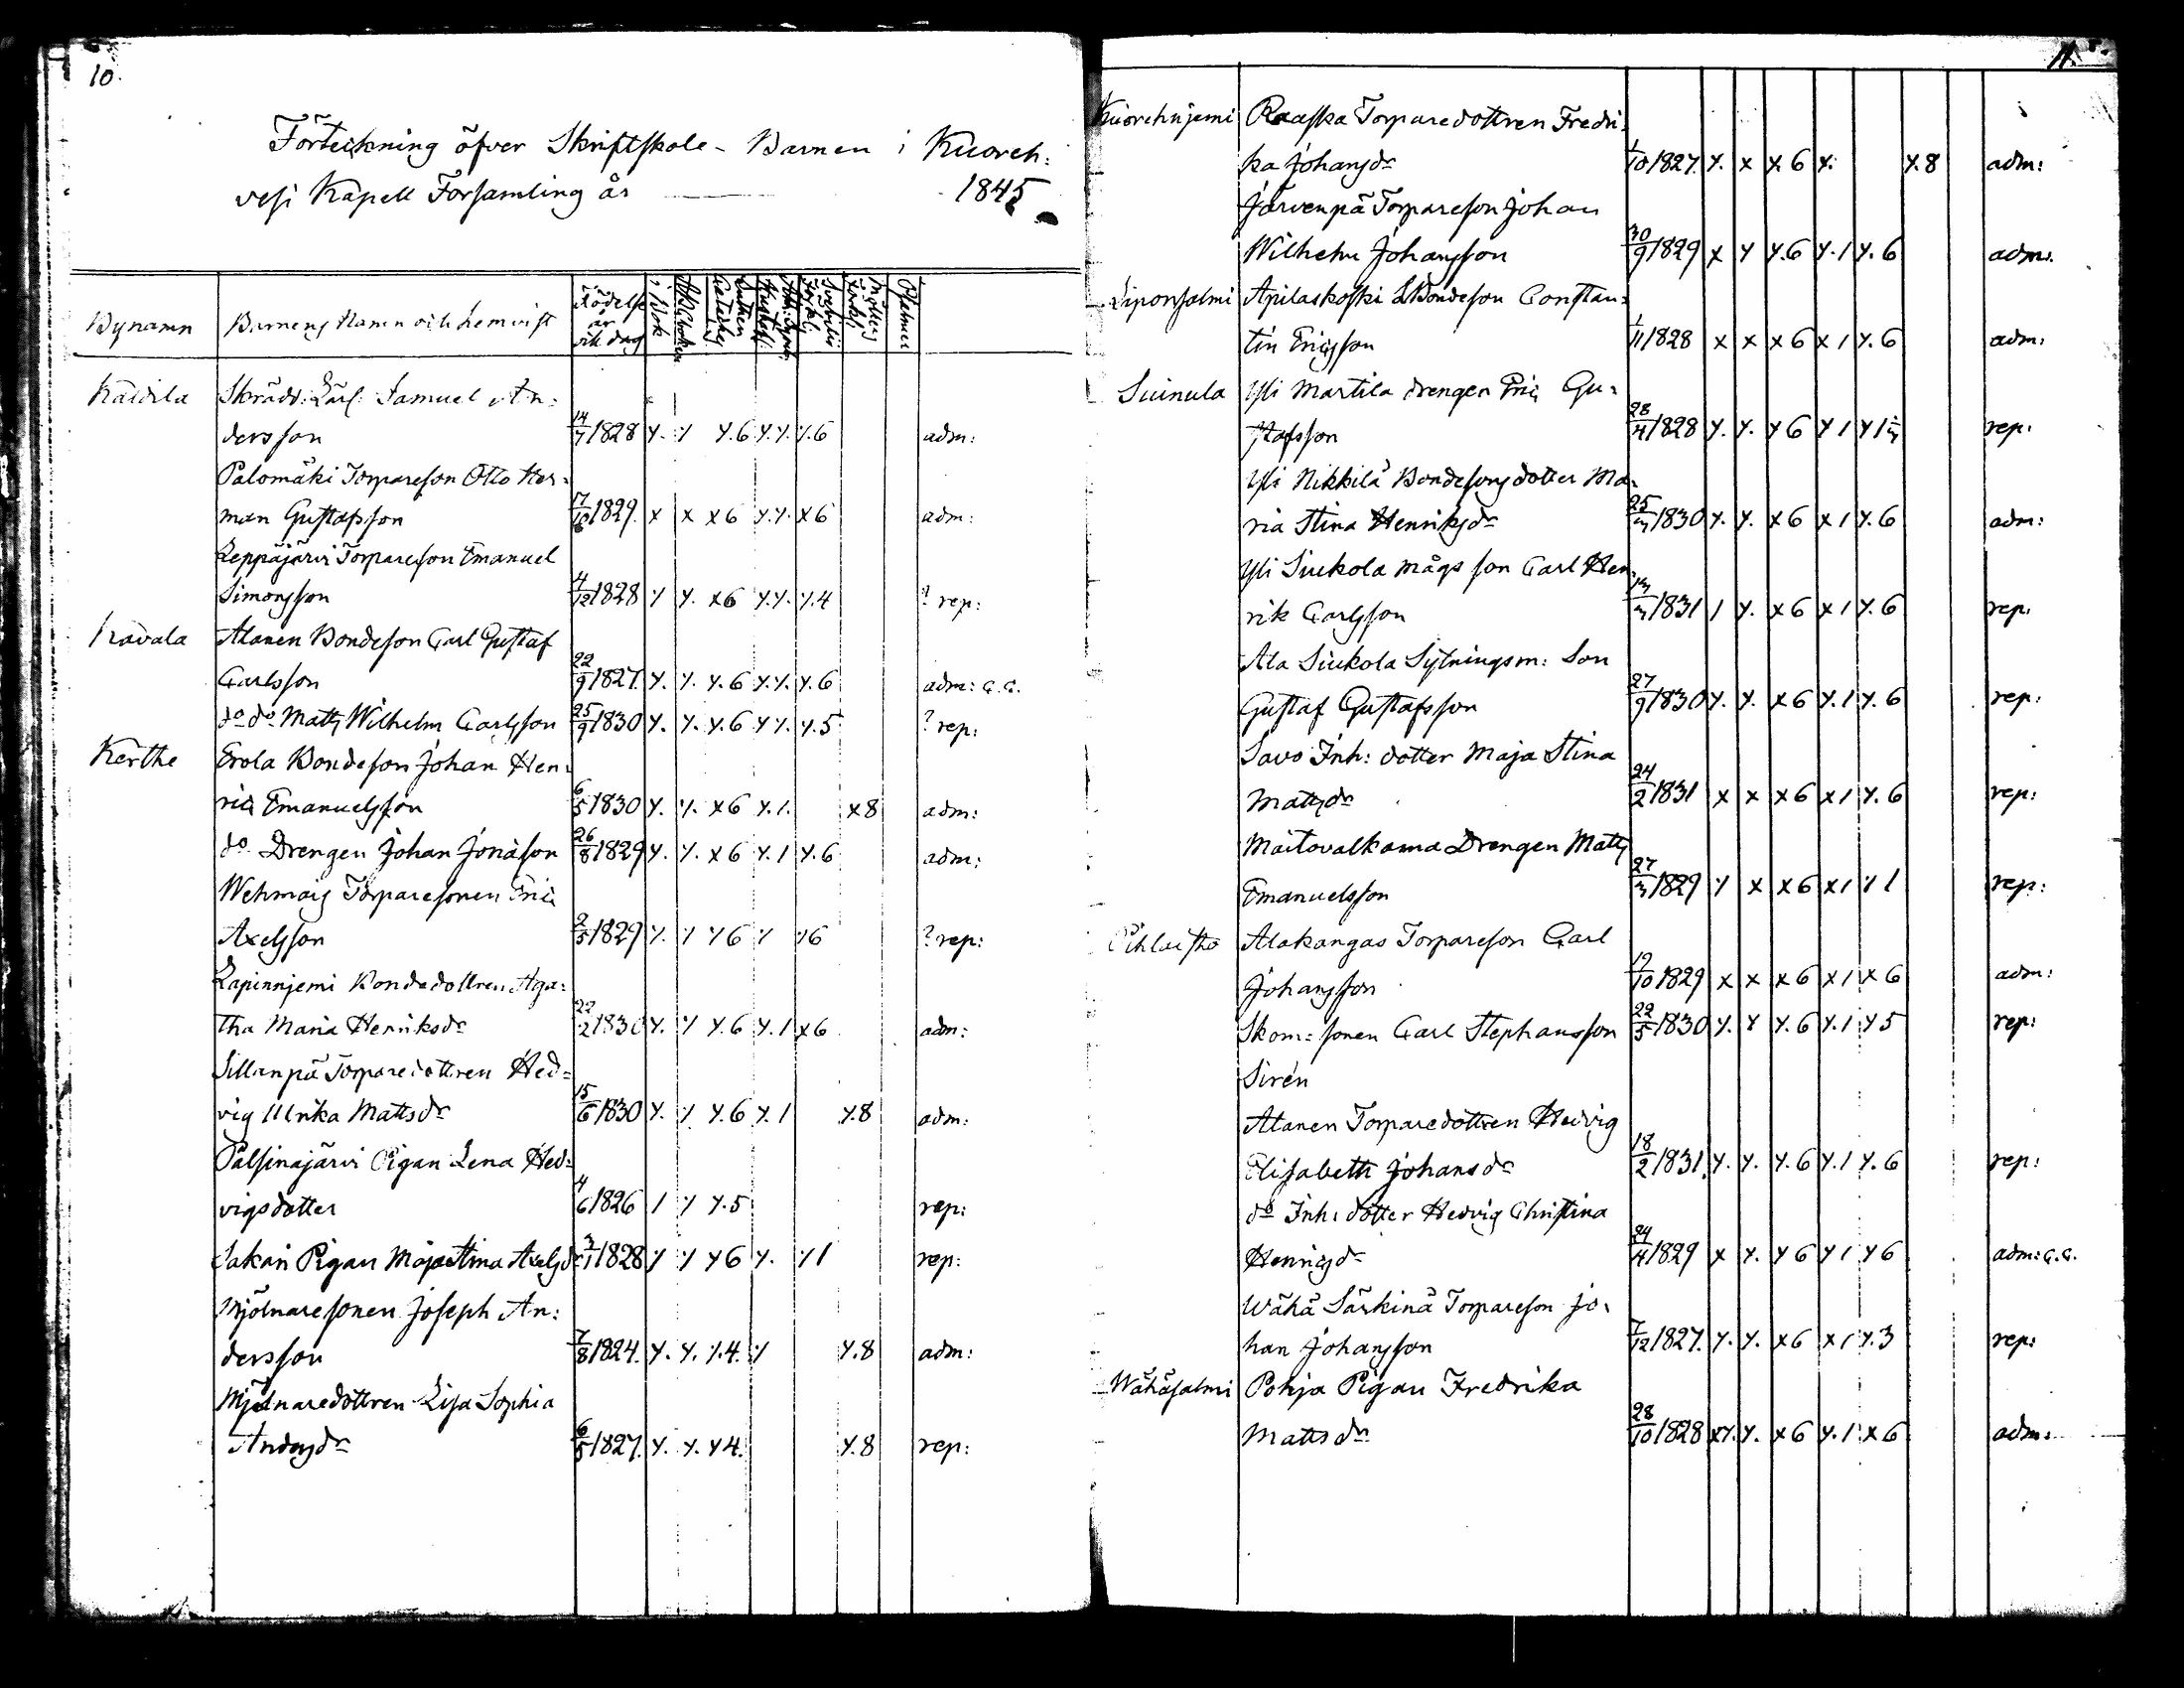 10.
Förteckning öfver Skriftskole-Barnen i Kuoreh:
vesi Kapell Församling år 1845
Bynamn Barnens Namn och hemvist Födelse år och dag i Bok ABC boken Luthers Cateches Svebilii Förkl: Psalmer
Skrädd: Lärl: Samuel An:
dersson 14/7 1828 x. x x.6 x.x. x.6 adm:
Palomäki Torpareson Otto Her:
man Gustafsson 17/10 1829. x x x6 x.x. x6 adm:
Leppäjärvi Torpareson Emanuel
Simonsson 4/12 1828 x x. x6 x.x. x.4 ? rep:
Alanen Bondeson Carl Gustaf
Carlsson 22/9 1827. x. x. x.6 x.x. x.6 adm: c.c.
do do Matts Wilhelm Carlsson 25/9 1830 x. x. x.6 x x. x.5 ? rep:
Kerthe Erola Bondeson Johan Hen:
ric Emanuelsson 6/5 1830 x. x. x6 x.1. x8 adm:
do Drengen Johan Jonasson 26/8 1829 x. x. x6 x.1 x.6 adm:
Wehmais Torparesonen Eric
Axelsson 2/5 1829 x. x x6 x x6 ? rep:
Lapinnjemi Bondedottren Aga:
tha Maria Henriksdr 22/2 1830 x. x x.6 x.1 x6 adm:
Sillanpä Torparedottren Hed=
vig Ulrika Mattsdr 15/6 1830 x. x x.6 x.1 x.8 adm:
Palsinajärvi Pigan Lena Hed:
vigsdotter 4/6 1826 1 x x.5 rep:
Sakari Pigan Maja Stina Axelsdr 3/1 1828 x x x6 x. x1 rep:
Mjölnaresonen Joseph An:
dersson 7/8 1824. x. x. x.4. x x.8 adm:
Mjölnaredottren Lisa Sophia
Andersdr 6/5 1827. x. x. x4. x.8 rep:
11.
Kuorehnjemi Raaska Torparedottren Fredri:
ka Johansdr 1/10 1827. x. x x.6 x. x.8 adm:
Järvenpä Torpareson Johan
Wilhelm Johansson 30/9 1829 x x x.6 x.1 x.6 adm.
Liponsalmi Apilaskoski Bondeson Constan:
tin Ericsson 1/11 1828 x x x6 x1 x.6 adm:
Suinula Yli Martila drengen Eric Gu:
stafsson 28/4 1828 x. x. x6 x1 rep:
Yli Nikkilä Bondesons dotter Ma:
ria Stina Henriksdr 25/3 1830 x. x. x6 x1 x.6 adm:
Yli Siukola mågs son Carl Hen:
rik Carlsson 1831 1 x. x6 x1 x.6 rep:
Ala Siukola Sytningsm: Son
Gustaf Gustafsson 27/9 1830 x. x. x6 x.1 x.6 rep:
Savo Inh: dotter Maja Stina
Mattsdr 24/2 1831 x x x6 x1 x.6 rep:
Maitovalkama Drengen Matts
Emanuelsson 27/3 1829 x x x6 x1 x1 rep:
Alakangas Torpareson Carl
Johansson 19/10 1829 x x x6 x1 x6 adm:
Skom: sonen Carl Stephansson 22/5 1830 x. x x.6 x.1 x5 rep:
Sirén
Alanen Torparedottren Hedvig
Elisabeth Johansdr 18/2 1831. x. x. x.6 x.1 x.6 rep:
do Inh: dotter Hedvig Christina
Henricsdr 24/4 1829 x x. x6 x1 x6 adm: c.c.
Wähä Särkinä Torpareson Jo:
han Johansson 7/12 1827. x. x. x6 x1 x.3 rep:
Wähäsalmi Pohja Pigan Fredrika
Mattsdr 28/10 1828 xx. x. x6 x.1 x6 adm: